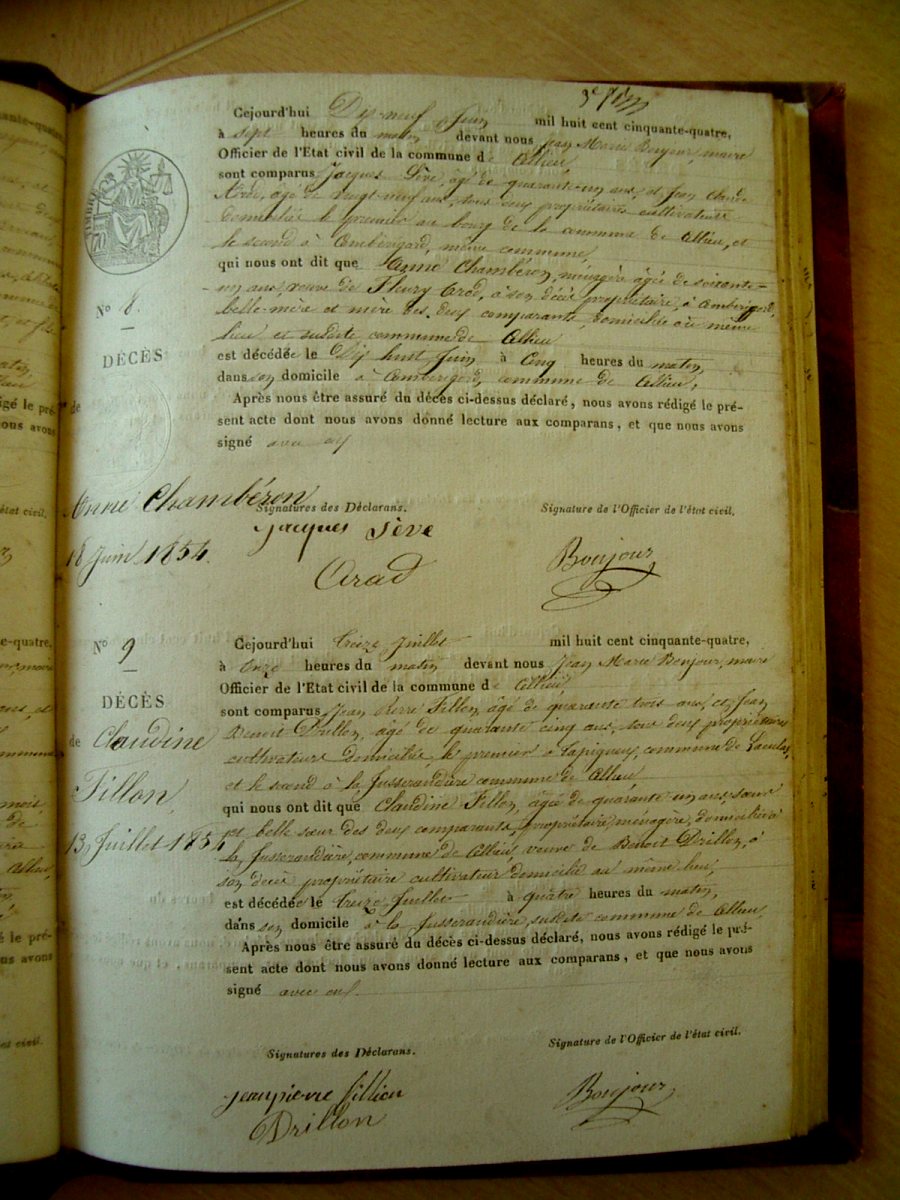 Cejourd'hui Dix-neuf Juin mil huit cent cinquante-quatre,
à sept heures du matin devant nous Jean Marie Bonjour, maire
Officier de l'Etat civil de la commune de Allieu,
sont comparus Jacques Sève, âgé de quarante-un ans, et Jean Claude
Arad, âgé de vingt-neuf ans, tous deux propriétaires cultivateurs
domiciliés le premier au bourg de la commune de Allieu, et
le second à Ambérigord, même commune,
qui nous ont dit que Anne Chambéron, ménagère âgée de soixante-
un ans, veuve de Fleury Arad, à son décès propriétaire, à Ambérigord,
belle-mère et mère des deux comparants, domiciliée au même
lieu et susdite commune de Allieu
N° 8.
DÉCÈS
de
Anne Chambéron
18 Juin 1854.
est décédée le Dix huit Juin à Cinq heures du matin,
dans son domicile à Ambérigord, commune de Allieu,
Après nous être assuré du décès ci-dessus déclaré, nous avons rédigé le pré-
sent acte dont nous avons donné lecture aux comparans, et que nous avons
signé avec eux
Signatures des Déclarans.
Signature de l'Officier de l'état civil.
jacques Sève
Arad
Bonjour
N° 9
DÉCÈS
de Claudine
Fillon
13 Juillet 1854
Cejourd'hui treize Juillet mil huit cent cinquante-quatre,
à Onze heures du matin devant nous Jean Marie Bonjour, maire
Officier de l'Etat civil de la commune de Allieu,
sont comparus Jean Pierre Fillon, âgé de quarante trois ans, et Jean
Benoit Drillon, âgé de quarante cinq ans, tous deux propriétaires
cultivateurs domiciliés, le premier à commune de
et le second à la Jusserandière commune de Allieu
qui nous ont dit que Claudine Fillon, âgée de quarante-un ans, sœur
et belle sœur des deux comparants, propriétaire, ménagère, domiciliée à
la Jusserandière, commune de Allieu, veuve de Benoit Drillon, à
son décès propriétaire cultivateur domicilié au même lieu,
est décédée le treize Juillet à quatre heures du matin,
dans son domicile à la Jusserandière, susdite commune de Allieu,
Après nous être assuré du décès ci-dessus déclaré, nous avons rédigé le pré-
sent acte dont nous avons donné lecture aux comparans, et que nous avons
signé avec eux.
Signatures des Déclarans.
Signature de l'Officier de l'état civil.
jeanpierre fillion
Drillon
Bonjour